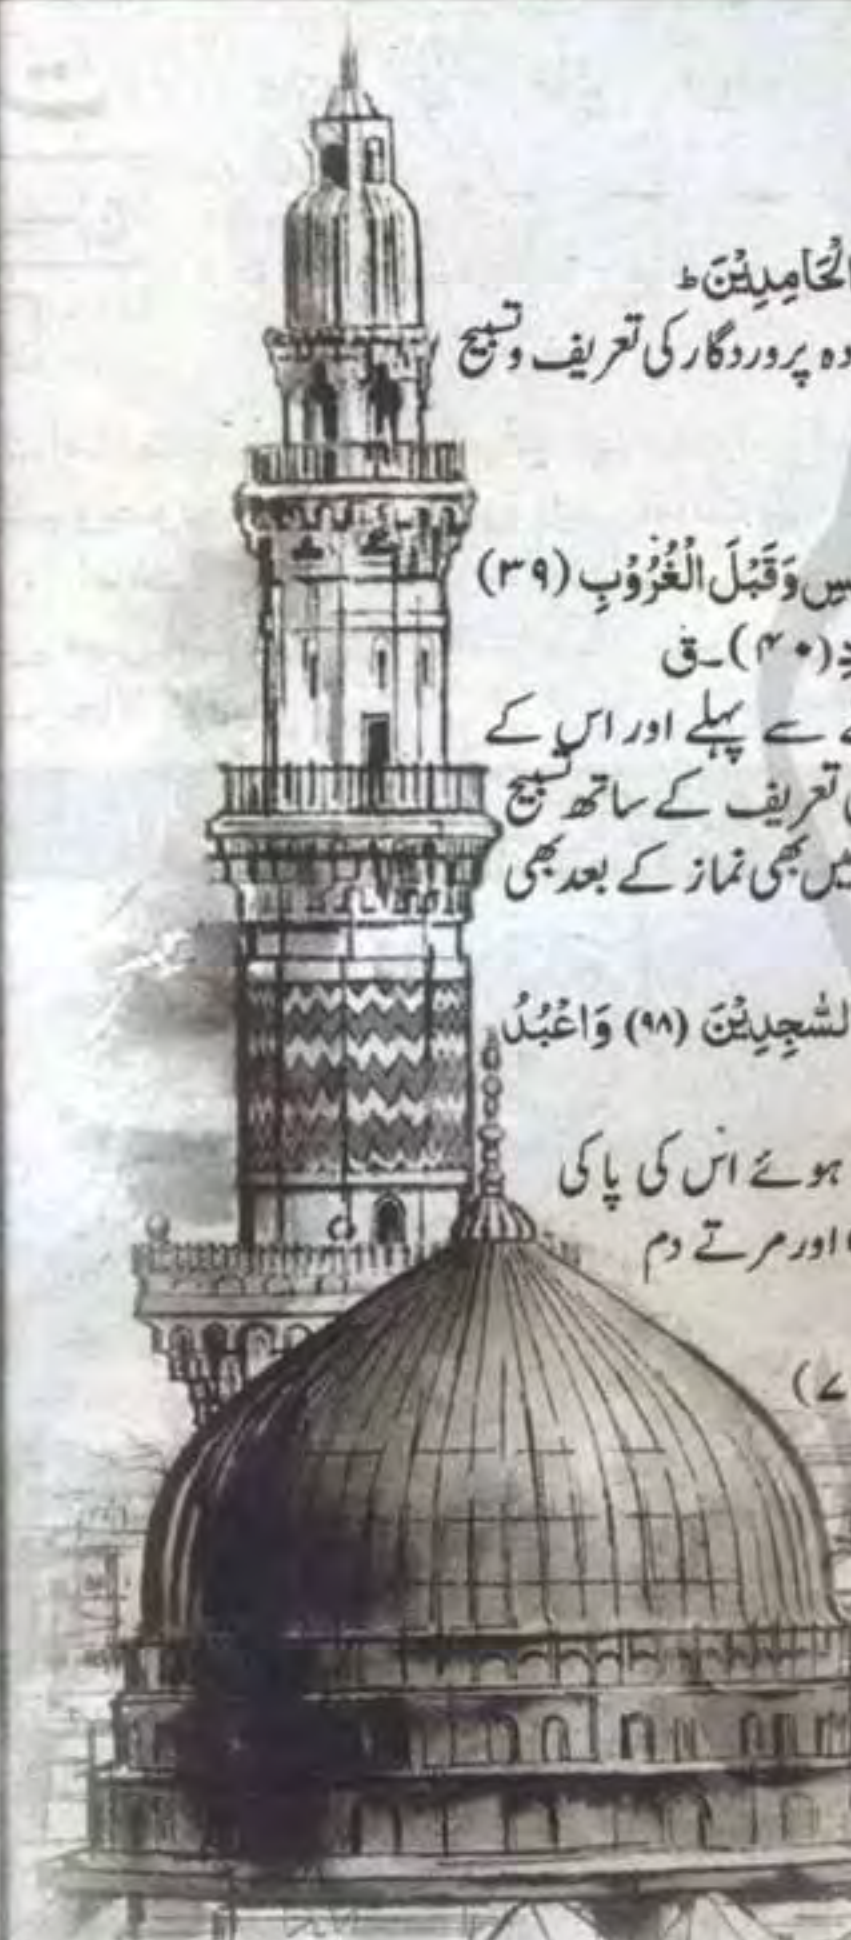 الْحَامِدِيْنَ ط
دہ پروردگار کی تعریف و تسبیح
وَقَبْلَ الْغُرُوْبِ (۳۹)
(۴۰)۔ق
سے پہلے اور اس کے
تعریف کے ساتھ تسبیح
میں بھی نماز کے بعد بھی
السّٰجِدِيْنَ (۹۸) وَاعْبُدْ
ہوئے اس کی پاکی
اور مرتے دم